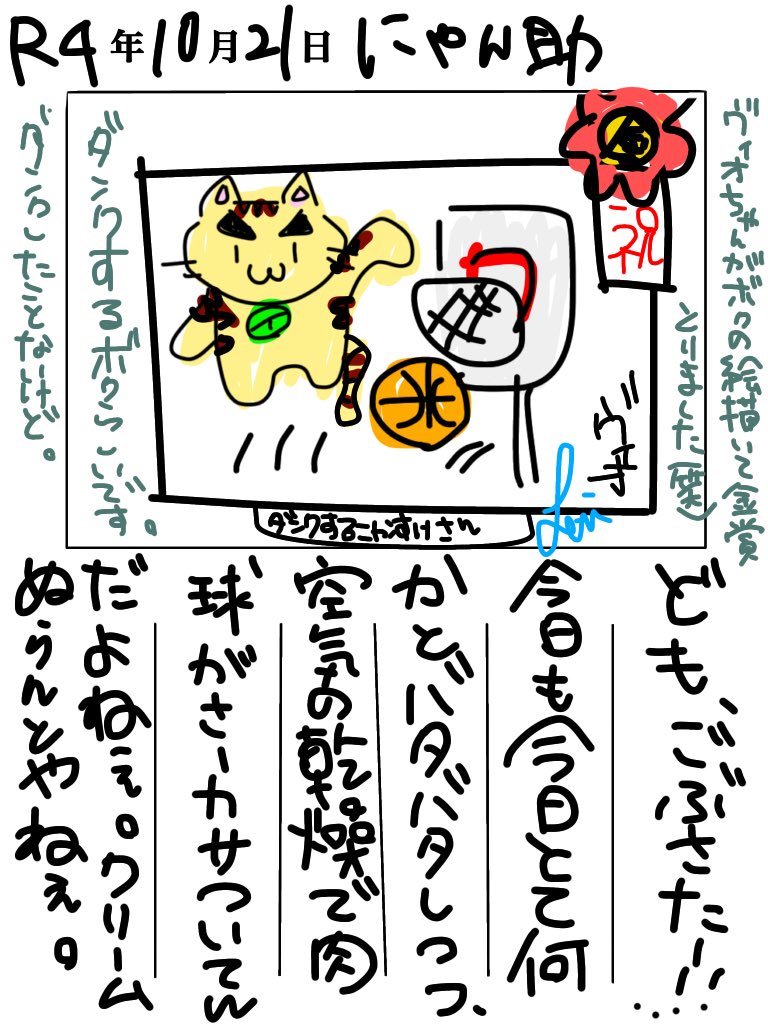 R4年10月21日 にゃん助
ヴィオちゃんがボクの絵描いて金賞
とりました(笑)
金
祝
ヴィ
ダンクするにゃんすけさん
ダンクするボクらしいです。
ダンクしたことないけど。
ども、ごぶさたー!!....
今日も今日とて何
かとバタバタしつつ、
空気の乾燥で肉
球がさーカサついてん
だよねぇ。クリーム
ぬらんとやねぇ。